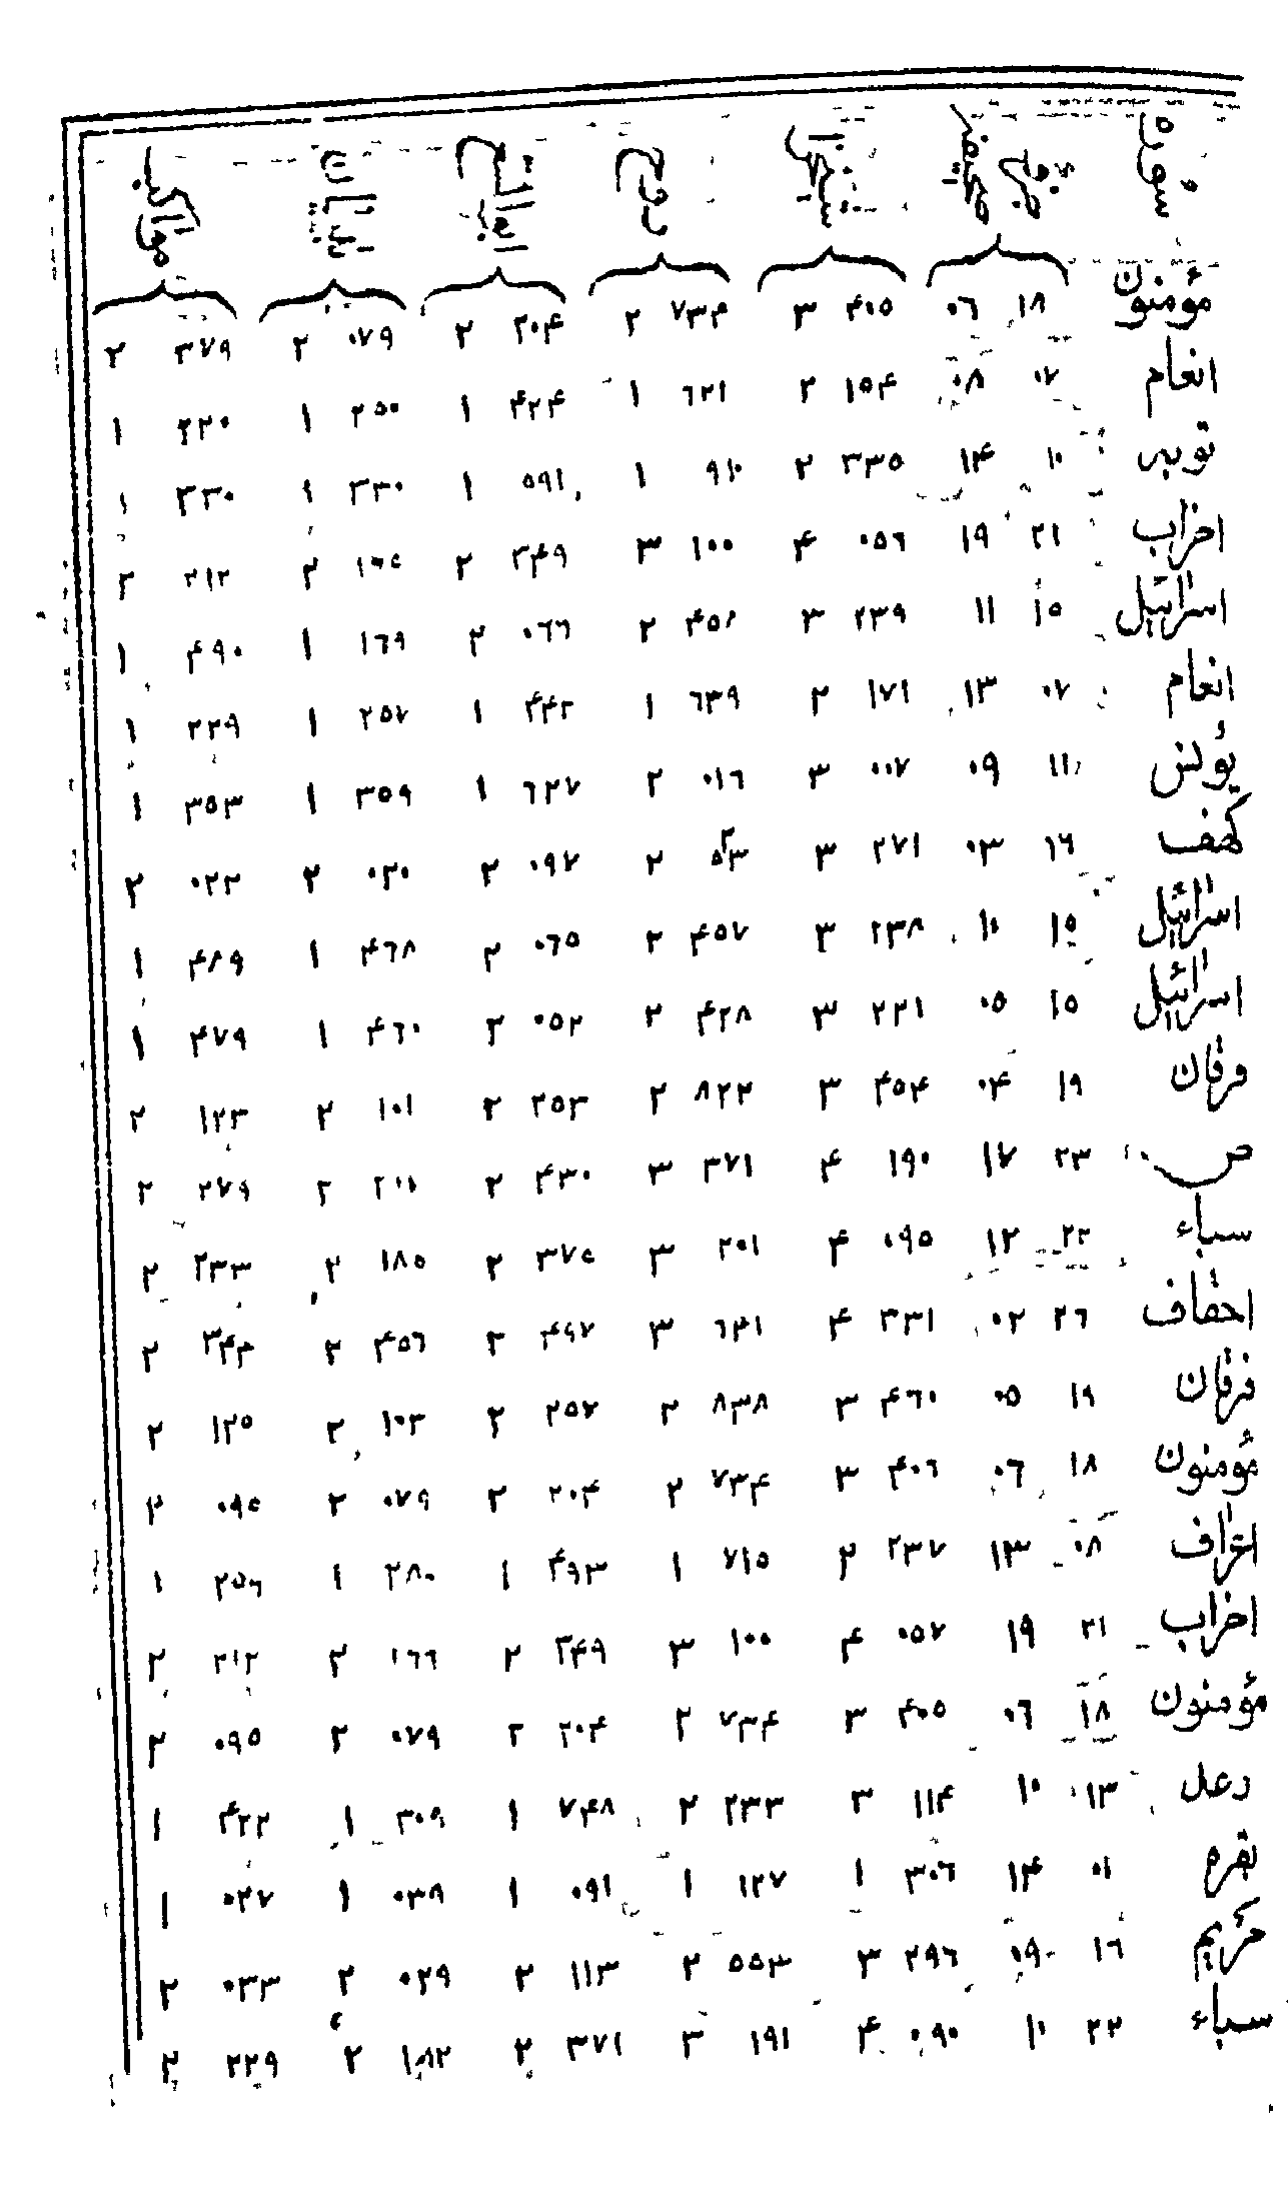 مؤمنون ١٨ ٠٦ ۴٠٥ ٣ ٧٣۴ ٢ ٢٠۴ ٢ ٠٧٩ ٢ ٣٧٩ ٢
انعام ٠٧ ٠٨ ١٥۴ ٢ ٦٢١ ١ ۴٢۴ ١ ٢٥٠ ١ ٢٢٠ ١
توبه ١٠ ١۴ ٣٣٥ ٢ ٩١٠ ١ ٥٩١ ١ ٣٣٠ ١ ٣٣٠ ١
احزاب ٢١ ١٩ ٠٥٦ ۴ ١٠٠ ٣ ٣۴٩ ٢ ٢ ٢١٢ ٢
اسرائیل ١٥ ١١ ٢٣٩ ٣ ۴٥٨ ٢ ٠٦٦ ٢ ١٦٩ ١ ۴٩٠ ١
انعام ٠٧ ١٣ ١٧١ ٢ ٦٣٩ ١ ۴۴٢ ١ ٢٥٧ ١ ٢٢٩ ١
یونس ١١ ٠٩ ٠٠٧ ٣ ٠١٦ ٢ ٦٢٧ ١ ٣٥٩ ١ ٣٥٣ ١
کهف ١٦ ٠٣ ٢٧١ ٣ ٢ ٠٩٧ ٢ ٠٢٠ ٢ ٠٢٣ ٢
اسرائیل ١٥ ١٠ ٢٣٨ ٣ ۴٥٧ ٢ ٠٦٥ ٢ ۴٦٨ ١ ۴٨٩ ١
اسرائیل ١٥ ٠٥ ٢٢١ ٣ ۴٢٨ ٢ ٠٥٢ ٢ ۴٦٠ ١ ۴٧٩ ١
فرقان ١٩ ٠۴ ۴٥۴ ٣ ٨٢٢ ٢ ٢٥٣ ٢ ١٠١ ٢ ١٢٣ ٢
ص ٢٣ ١٧ ١٩٠ ۴ ٣٧١ ٣ ۴٣٠ ٢ ٢ ٢٧٩ ٢
سباء ٢٢ ١٢ ٠٩٥ ۴ ٢٠١ ٣ ٣٧٥ ٢ ١٨٥ ٢ ٢٣٣ ٢
احقاف ٢٦ ٠٢ ٣٣١ ۴ ٦۴١ ٣ ۴٩٧ ٢ ۴٥٦ ٢ ٣۴۴ ٢
فرقان ١٩ ٠٥ ۴٦٠ ٣ ٨٣٨ ٢ ٢٥٧ ٢ ١٠٣ ٢ ١٢٥ ٢
مؤمنون ١٨ ٠٦ ۴٠٦ ٣ ٧٣۴ ٢ ٢٠۴ ٢ ٠٧٩ ٢ ٠٩٥ ٢
اعراف ٠٨ ١٣ ٢٣٧ ٢ ٧١٥ ١ ۴٩٣ ١ ٢٨٠ ١ ٢٥٦ ١
احزاب ٢١ ١٩ ٠٥٧ ۴ ١٠٠ ٣ ٣۴٩ ٢ ١٦٦ ٢ ٢١٢ ٢
مؤمنون ١٨ ٠٦ ۴٠٥ ٣ ٧٣۴ ٢ ٢٠۴ ٢ ٠٧٩ ٢ ٠٩٥ ٢
رعل ١٣ ١٠ ١١۴ ٣ ٢٣٣ ٢ ٧۴٨ ١ ٣٠٩ ١ ۴٢٢ ١
بقره ٠١ ١۴ ٣٠٦ ١ ١٢٧ ١ ٠٩١ ١ ٠٣٨ ١ ٠٢٧ ١
مریم ١٦ ٠٩ ٢٩٦ ٣ ٥٥٣ ٢ ١١٣ ٢ ٠٢٩ ٢ ٠٣٣ ٢
سباء ٢٢ ١٠ ٠٩٠ ۴ ١٩١ ٣ ٣٧١ ٢ ١٨٢ ٢ ٢٢٩ ٢